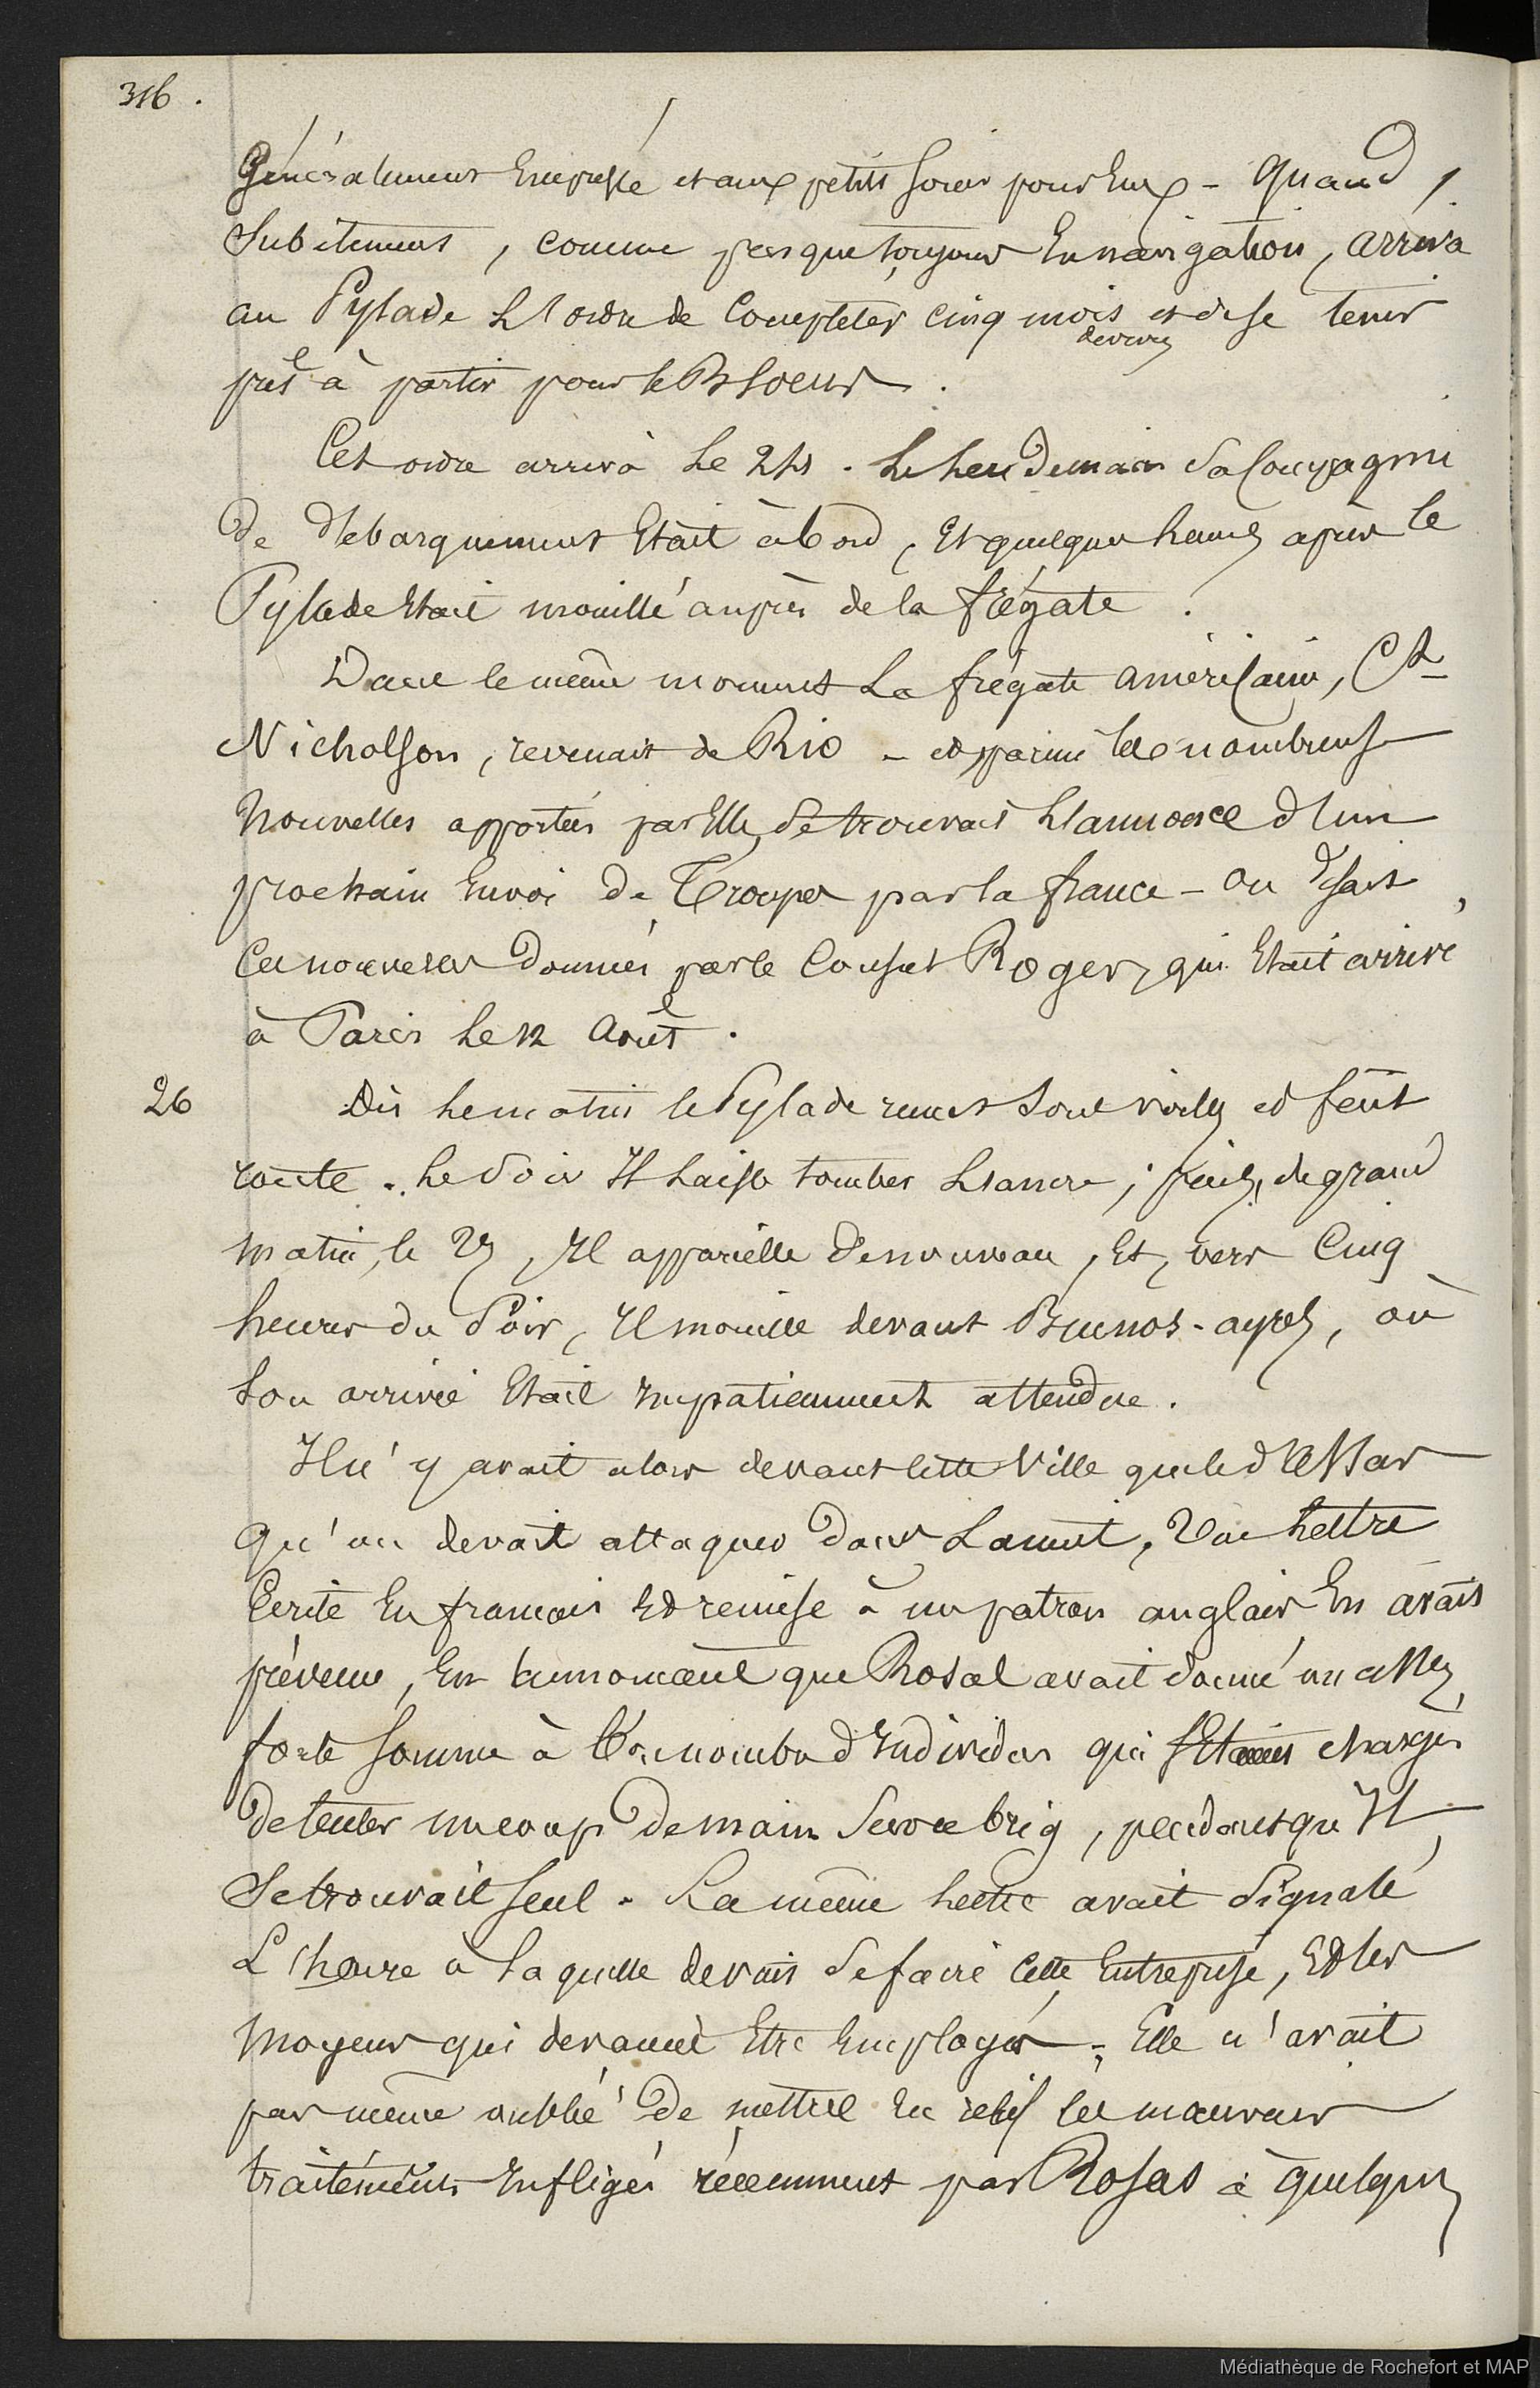 316.
Généralement Empressé et aux petits soins pour Eux - Quand,
Subitement, comme presque toujours En navigation, arriva
au Pylade L'ordre de Completer cinq mois de vivres et de se tenir
prêt à partir pour le
Cet ordre arriva Le 24. Le Lendemain Sa Compagnie
De Débarquement Etait à bord, Et quelques heures après le
Pylade Etait mouillé auprès de la frégate.
Dans le même moment La frégate américaine, Ct
Nicholson, revenait de Rio - et parmi les nombreuses
Nouvelles apportées par Elle, Se trouvait L'annonce d'un
prochain Envoi De Troupes par la france - on disait
Ces nouvelles Données par le Consul Roger, qui Etait arrivé
à Paris Le 12 Août.
26 Dès Le matin le Pylade remet Sous voiles et fait
route. Le Soir Il Laisse tomber L'ancre; puis, de grand
matin, le 27, Il appareille De nouveau, Et, vers Cinq
heures du Soir, Il mouille devant Buenos-ayres, où
Son arrivée Etait Impatiemment attendue.
Il n'y avait alors devant Cette Ville que le d'Assas
Qu'on devait attaquer Dans La nuit, Une Lettre
Ecrite En français Et remise à un patron anglais En avait
prévenu, En announcant que Rosas avait donné une assez
forte Somme à bon nombre d'Individus qui s'Etaient chargés
De tenter un coup De main Sur ce brig, pendant qu'Il
Se trouvait Seul. La même Lettre avait Signalé
L'heure à Laquelle devait Se faire Cette Entreprise, Et les
Moyens qui devaient Etre Employés; Elle n'avait
pas même oublié De mettre En relief les mauvais
traitements Infligés récemment par Rosas à Quelques
Médiathèque de Rochefort et MAP